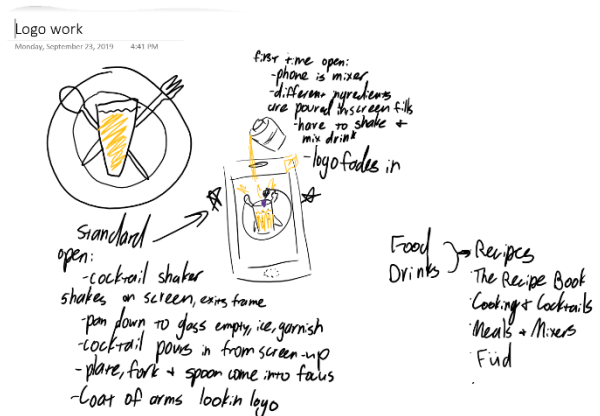 Logo work
Monday, September 23, 2019    4:41 PM
first time open:
-phone is mixer
-different ingredients
are poured in screen fills
-have to shake +
mix drink
-logo fades in
Standard
open:
-cocktail shaker
shakes on screen, exits frame
-pan down to glass empty, ice, garnish
-cocktail pours in from screen-up
-plate, fork + spoon come into focus
-Coat of arms lookin logo
Food
Drinks
Recipes
The Recipe Book
Cooking + Cocktails
Meals + Mixers
Füd